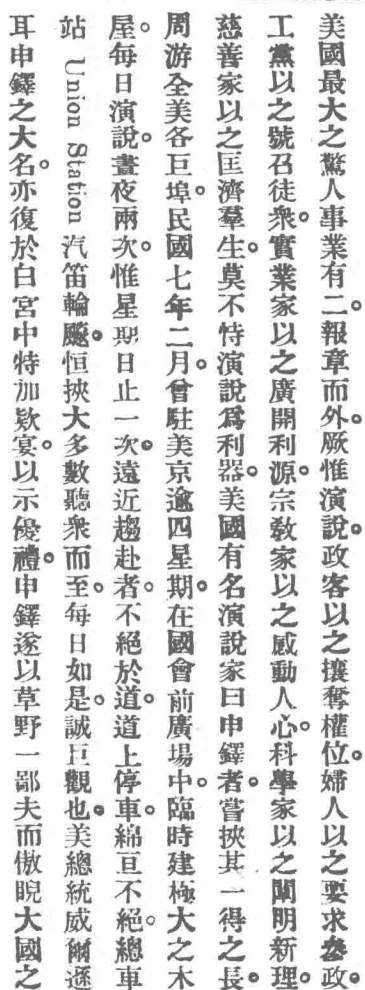 美國最大之驚人事業有二。報章而外。厥惟演說。政客以之攘奪權位。婦人以之要求參政。
工黨以之號召徒衆。實業家以之廣開利源。宗敎家以之感動人心。科學家以之闡明新理。
慈善家以之匡濟羣生。莫不恃演說爲利器。美國有名演說家曰申鐸者。嘗挾其一得之長。
周游全美各巨埠。民國七年二月。曾駐美京逾四星期。在國會前廣場中。臨時建極大之木
屋。每日演說。晝夜兩次。惟星期日止一次。遠近趨赴者。不絕於道。道上停車。綿亘不絕。總車
站 Union Station 汽笛輪飈。恒挾大多數聽衆而至。每日如是。誠巨觀也。美總統威爾遜
耳申鐸之大名。亦復於白宮中特加欵宴。以示優禮。申鐸遂以草野一鄙夫而傲睨大國之